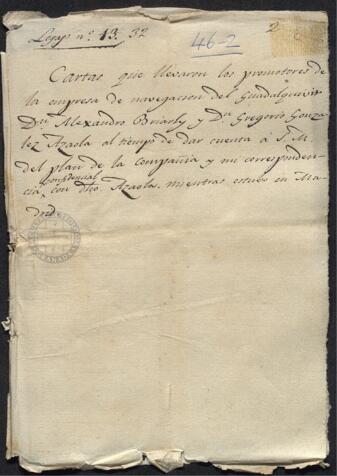 Legajo nº. 13. 32
46-2
2
Cartas que llevaron los promotores de
la empresa de navegacion del Guadalquivir
Dn. Alexandro Briarly y Dn. Gregorio Gonza-
lez Azaola al tiempo de dar cuenta á S. M.
del plan de la Compañia y mi corresponden-
confidencial
cia con dho. Azaola mientras estubo en Ma-
drid.